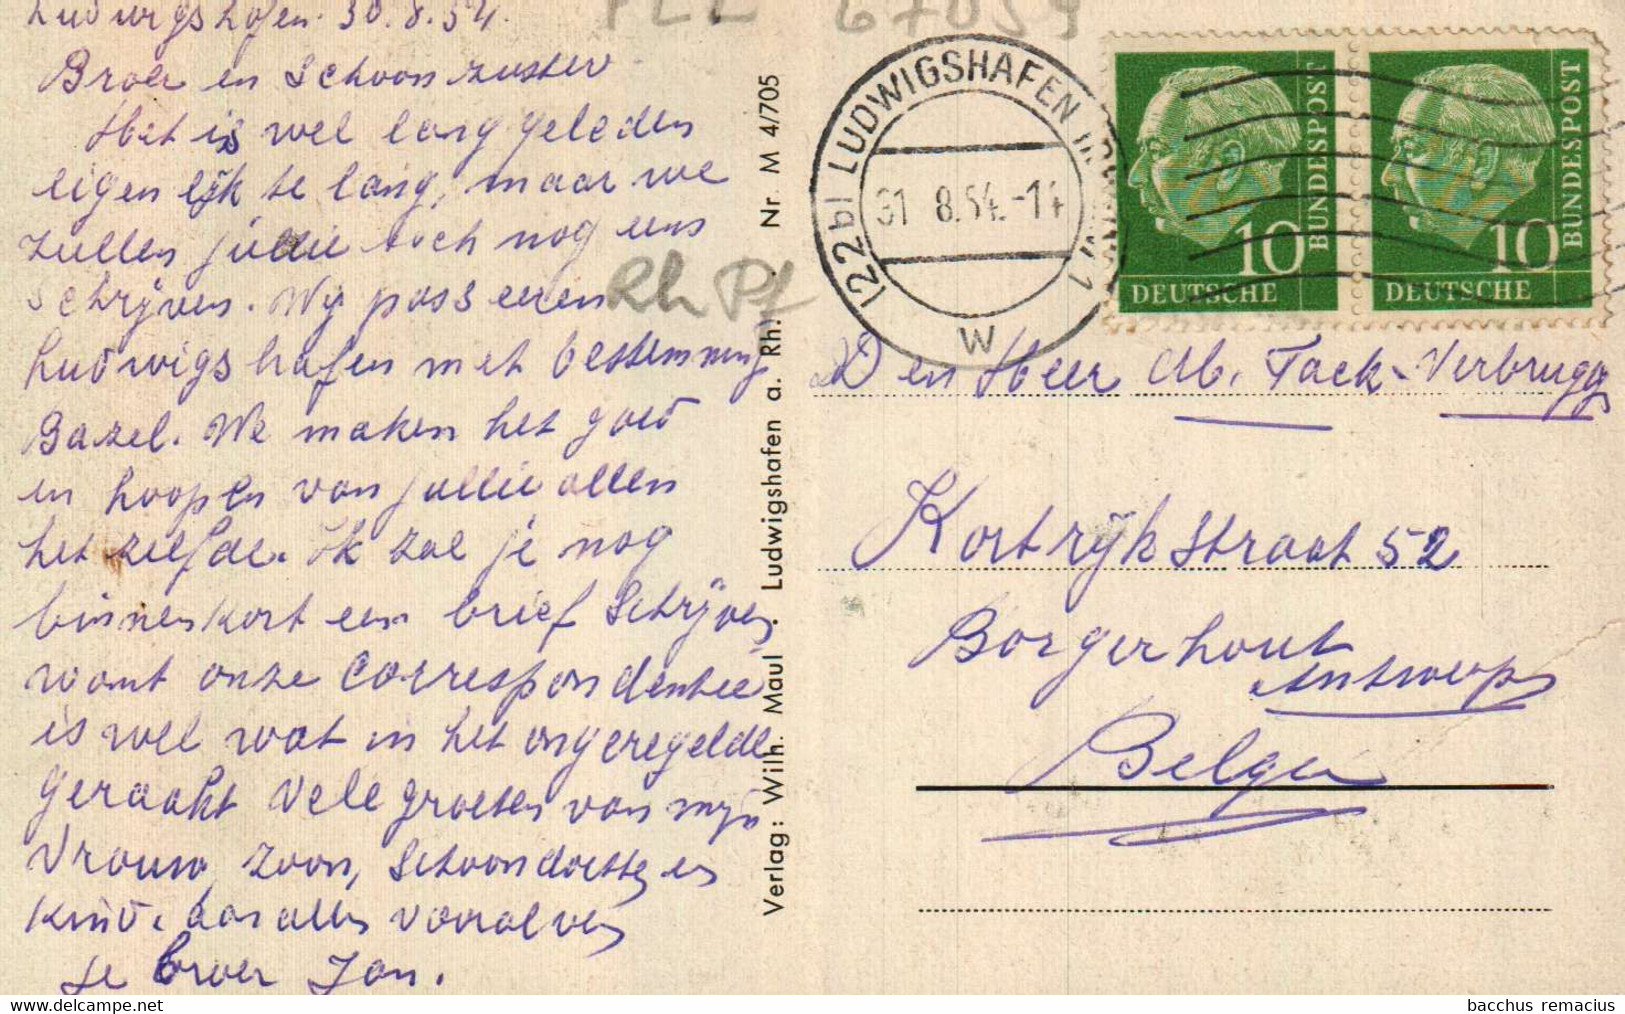 Ludwigshafen. 30.8.54.
Broer en Schoonzuster
Het is wel lang geleden
eigenlijk te lang, maar we
zullen jullie toch nog eens
Schrijven. Wij passeeren
Ludwigshafen met bestemming
Bazel. We maken het goed
en hoopen van jullie allen
het zelfde. Ik zal je nog
binnenkort een brief Schrijven
want onze Correspondentie
is wel wat in het ongeregelde
geraakt Vele groeten van mijn
Vrouw, zoon, Schoondochter en
Kind. aan allen vooral van
je broer Jan.
67059
Rh Pf
Verlag: Wilh. Maul . Ludwigshafen a. Rh. . Nr. M 4/705
(22b) LUDWIGSHAFEN
31.8.54.-14
W
10
BUNDESPOST
DEUTSCHE
10
BUNDESPOST
DEUTSCHE
Den Heer Alb. Tack-Verbrugg
Kortrijkstraat 52
Borgerhout
Antwerpen
België
bacchus remacius